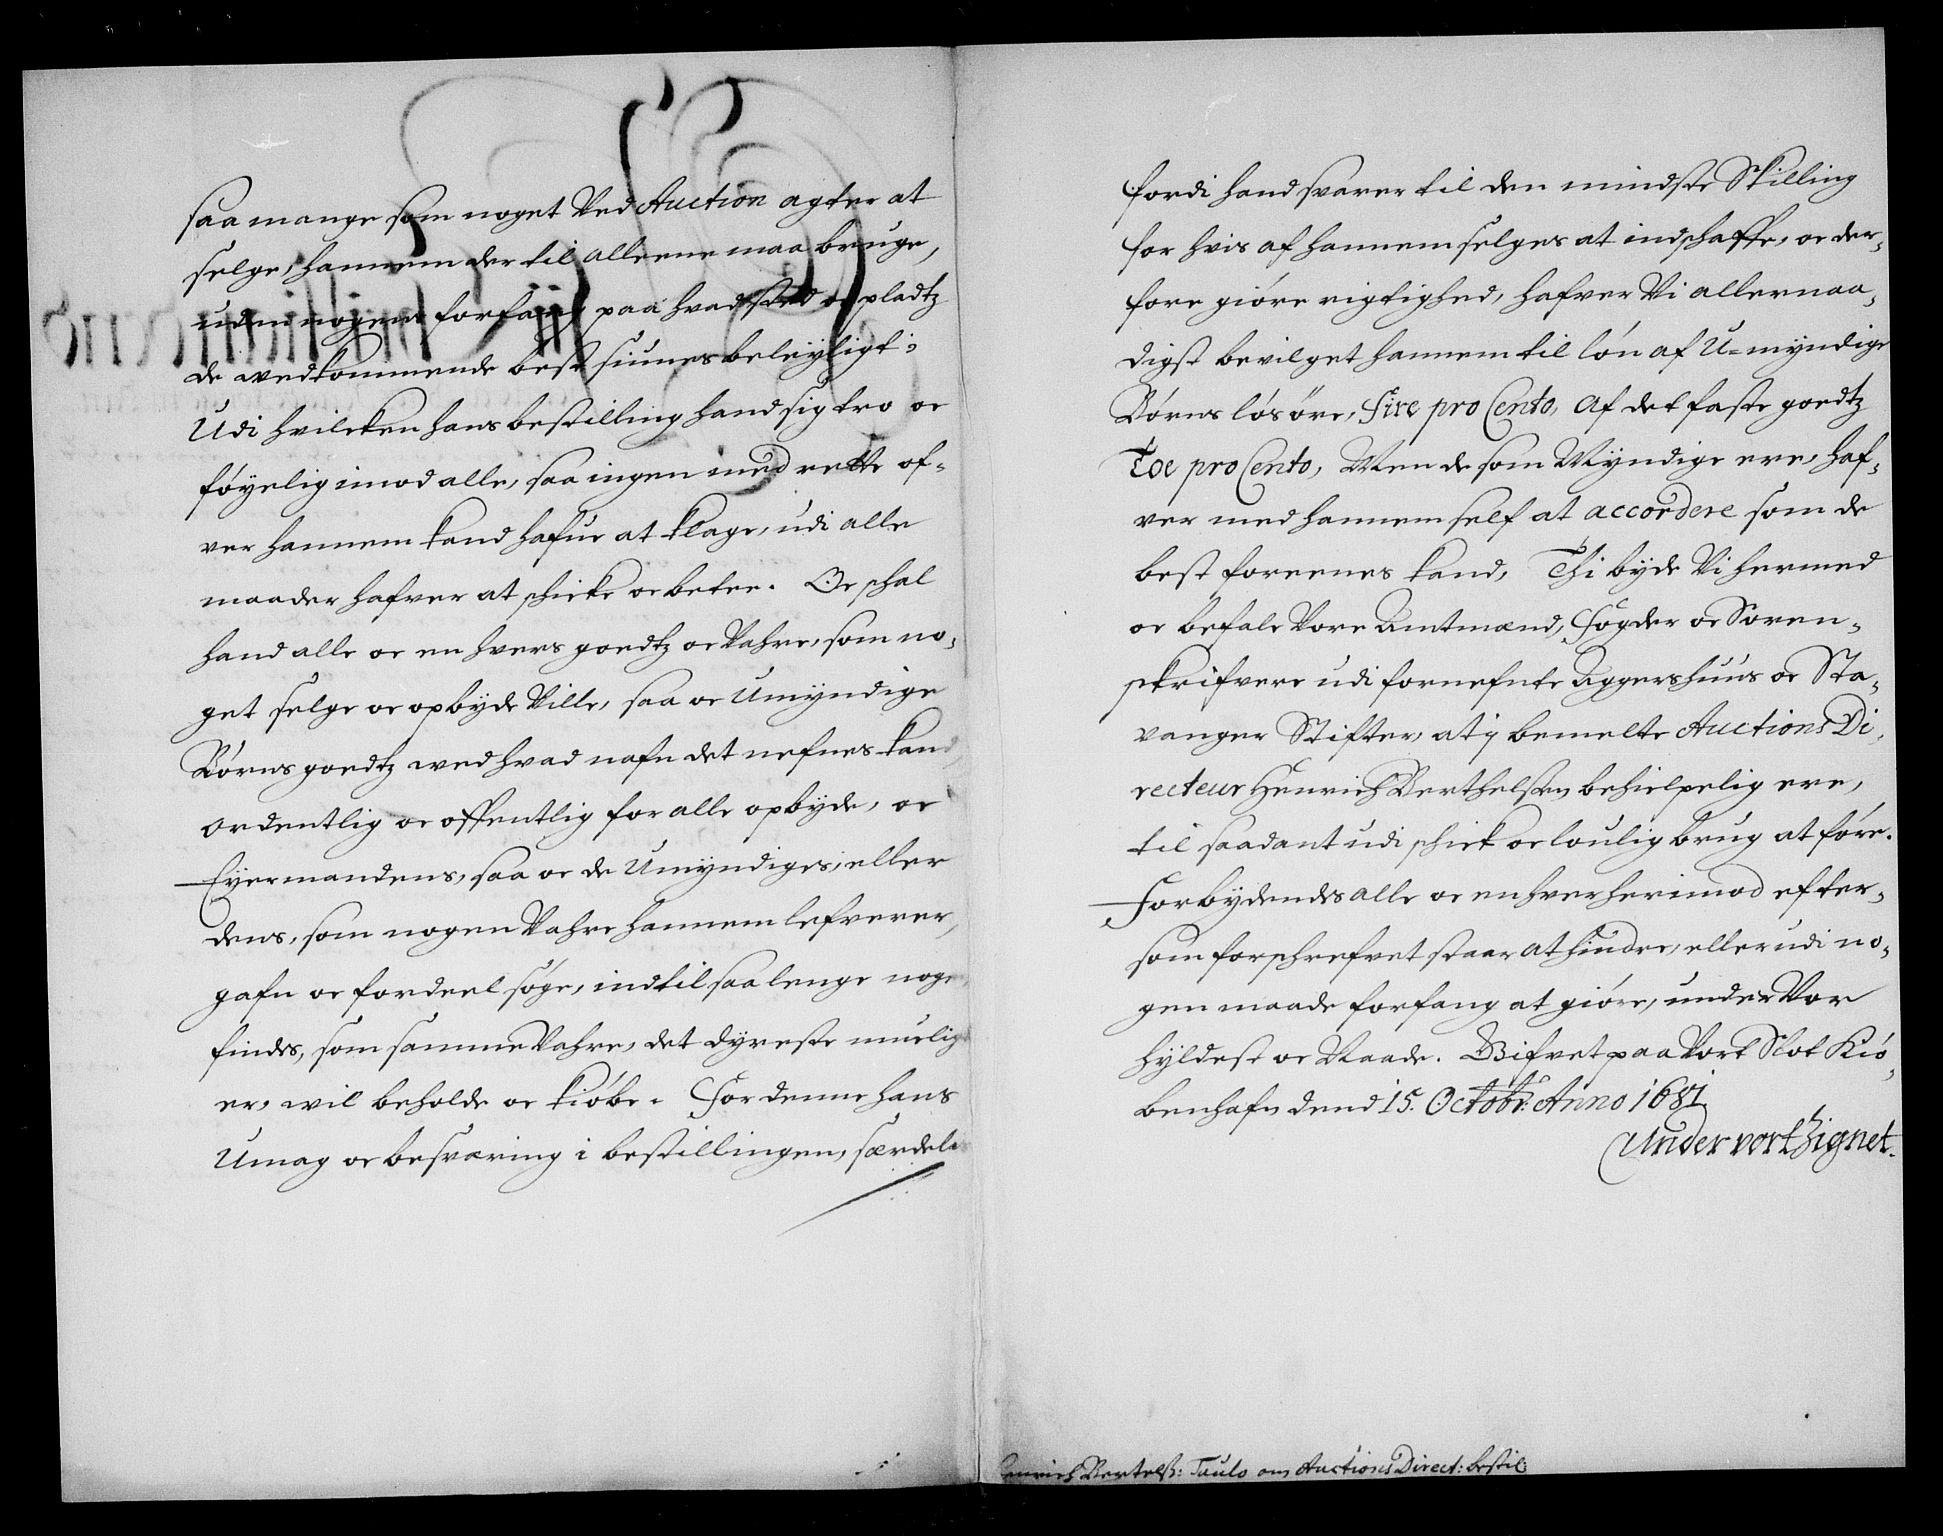 saa mange som noget Ved Auction agter at
selge, hannem der til alleene maa bruge,
uden nogens forfang paa hvad sted oc pladtz
de wedkommende best siunes beleyligt.
Udi hvilcken hans bestilling hand sig tro oc
føyelig imod alle, saa ingen med rette of-
ver hannem kand hafue at klage, udi alle
maader hafver at schicke oc betee. Oc schal
hand alle oc en hvers goedtz oc Vahre, som no-
get selge oc opbyde Ville, saa oc Umyndige
Børns goedtz wed hvad nafn det nefnes kand,
ordentlig oc offentlig for alle opbyde, oc
Eyermandens, saa oc de Umyndiges, eller
dens, som nogen Vahre hannem lefverer,
gafn oc fordeel søge, indtil saa lenge nogen
findes, som samme Vahre, det dyreste mueligt
er, wil beholde oc kiøbe. For denne hans
Umag oc besværing i bestillingen, særdeles
fordi hand svarer til den mindste Skilling
for hvis af hannem selges at indschaffe, oc der-
fore giöre rigtighed, hafver Vi allernaa-
digst bevilget hannem til lön af U-myndige
Börns lösöre, Fire pro Cento, Af det faste goedtz
Toe pro Cento, Men de som Myndige ere, haf-
ver med hannem self at accordere som de
best foreenes kand, Thi byde Vi hermed
oc befale Vore Amtmænd, Fogder oc Soren-
skrifvere udi fornefnte Aggershuus oc Sta-
vanger Stifter, at i bemelte Auctions Di-
recteur Henrich Berthelsen behielpelig ere,
til saadant udi schick oc loulig brug at före.
Forbydendes alle oc enhver herimod efter-
som forschrefvet staar at hindre, eller udi no-
gen maade forfang at giöre, under Vor
hyldest oc Naade. Gifvet paa Vort Slot Kiö-
benhafn dend 15. Octobr: Anno 1681.
Under vort Zignet.
Henrich Bertelß: Taulo om Auctions Direct: bestil: